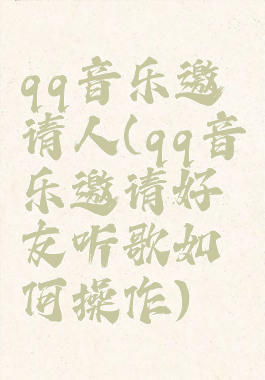 qq音乐邀
请人(qq音
乐邀请好
友听歌如
何操作)